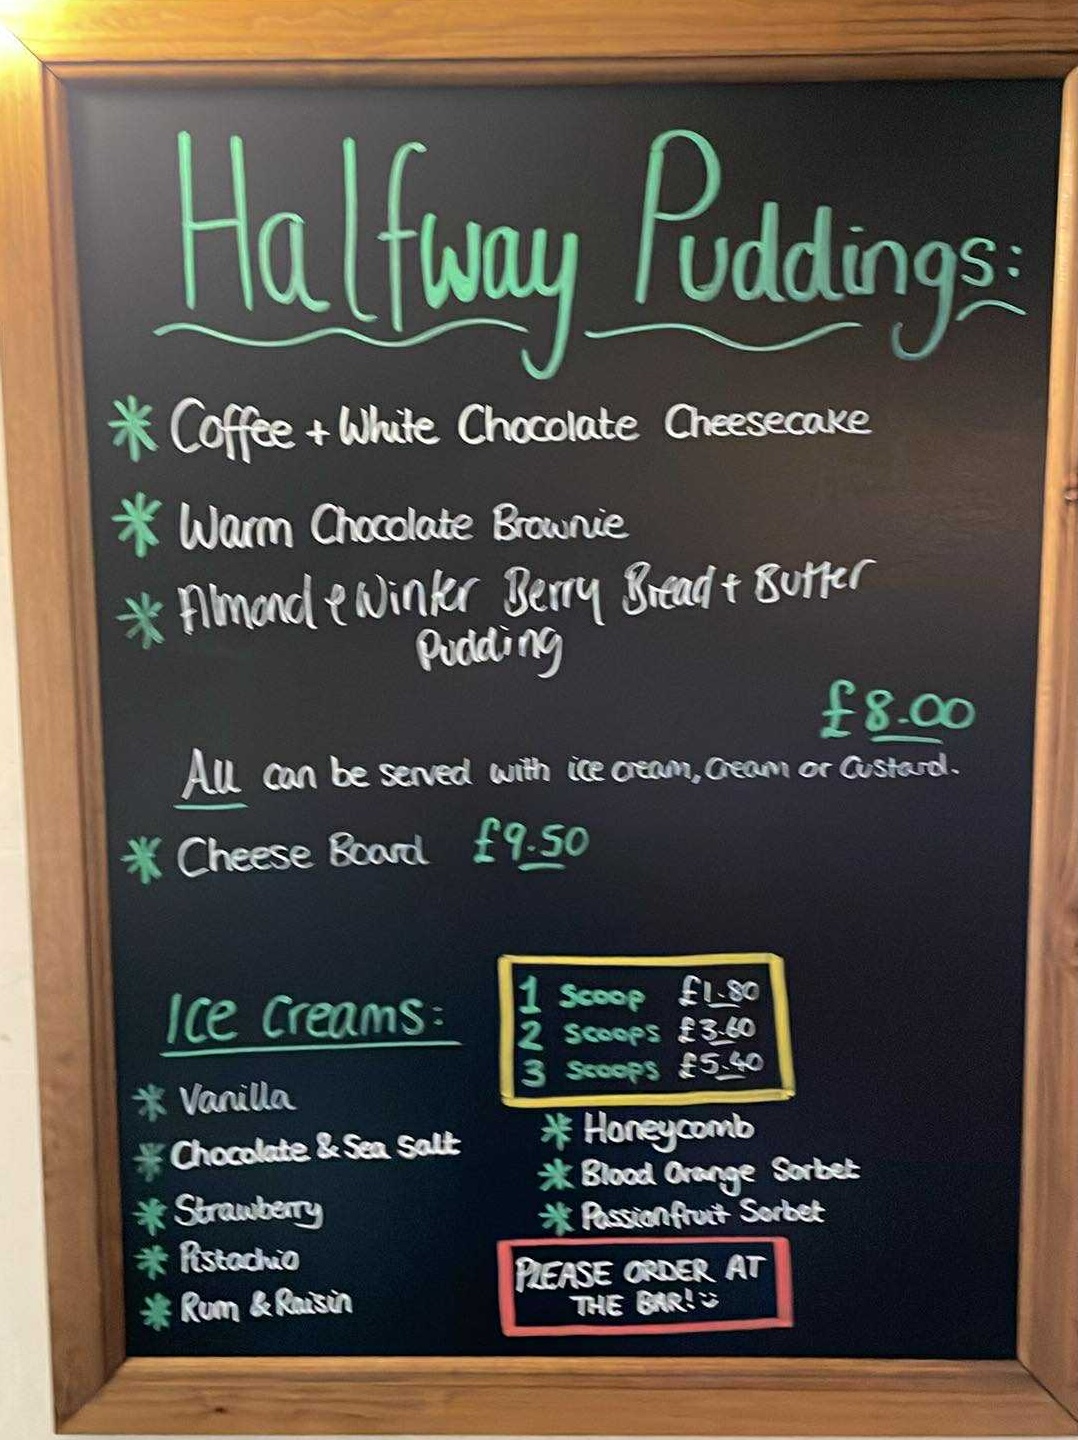 Halfway Puddings:
* Coffee + White Chocolate Cheesecake
* Warm Chocolate Brownie
* Almond & Winter Berry Bread + Butter
Pudding
£8.00
All can be served with ice cream, cream or custard.
* Cheese Board £9.50
Ice Creams:
1 Scoop £1.80
2 Scoops £3.60
3 Scoops £5.40
* Vanilla
* Chocolate & Sea Salt
* Strawberry
* Pistachio
* Rum & Raisin
* Honeycomb
* Blood Orange Sorbet
* Passionfruit Sorbet
PLEASE ORDER AT
THE BAR! ☺